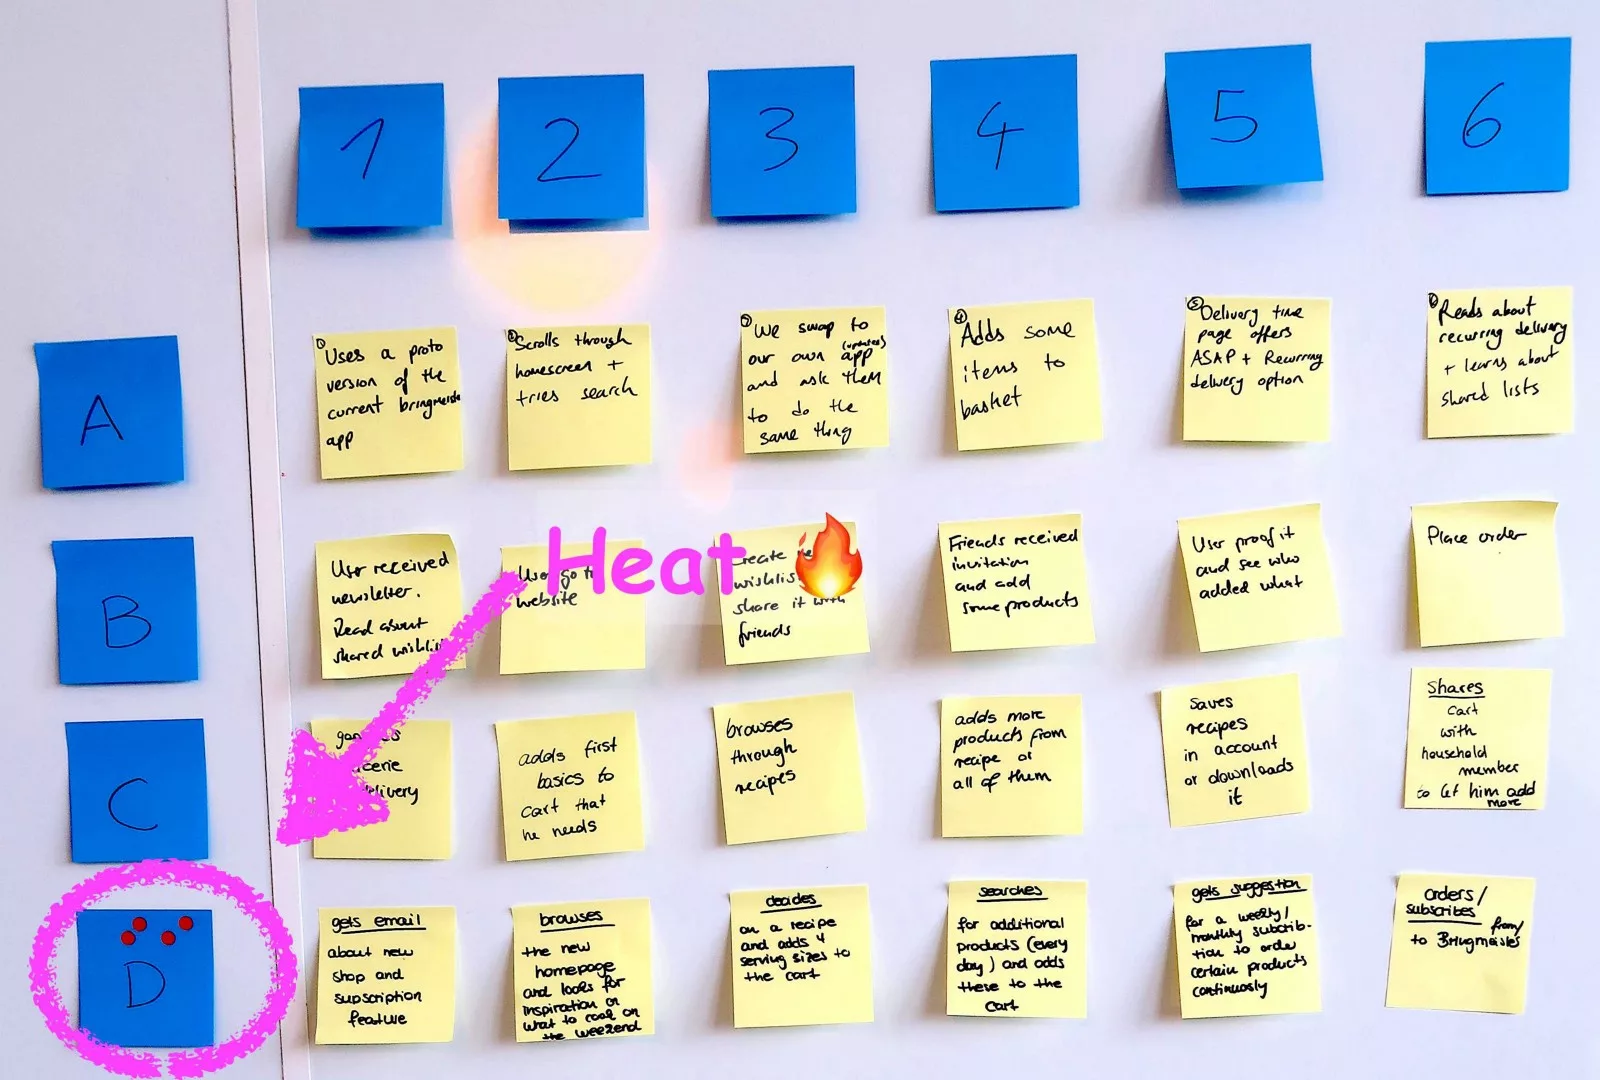 1
2
3
4
5
6
A
① Uses a proto
version of the
current bringmeister
app
② Scrolls through
homescreen +
tries search
③ We swap to
our own (updated) app
and ask them
to do the
same thing
④ Adds some
items to
basket
⑤ Delivery time
page offers
ASAP + Recurring
delivery option
⑥ Reads about
recurring delivery
+ learns about
shared lists
B
User received
newsletter.
Read about
shared
User go to
website
Create
share it with
friends
Friends received
invitation
and add
some products
User proof it
and see who
added what
Place order
Heat
C
adds first
basics to
cart that
he needs
browses
through
recipes
adds more
products from
recipe or
all of them
saves
recipes
in account
or downloads
it
shares
cart
with
household
member
to let him add
more
D
gets email
about new
shop and
supscription
feature
browses
the new
homepage
and looks for
inspiration on
what to cook on
the weekend
decides
on a recipe
and adds 4
serving sizes to
the cart
searches
for additional
products (every
day) and adds
these to the
cart
gets suggestion
for a weekly/
monthly subscrib-
tion to order
certain products
continuously
orders/
subscribes from/
to Bringmeister